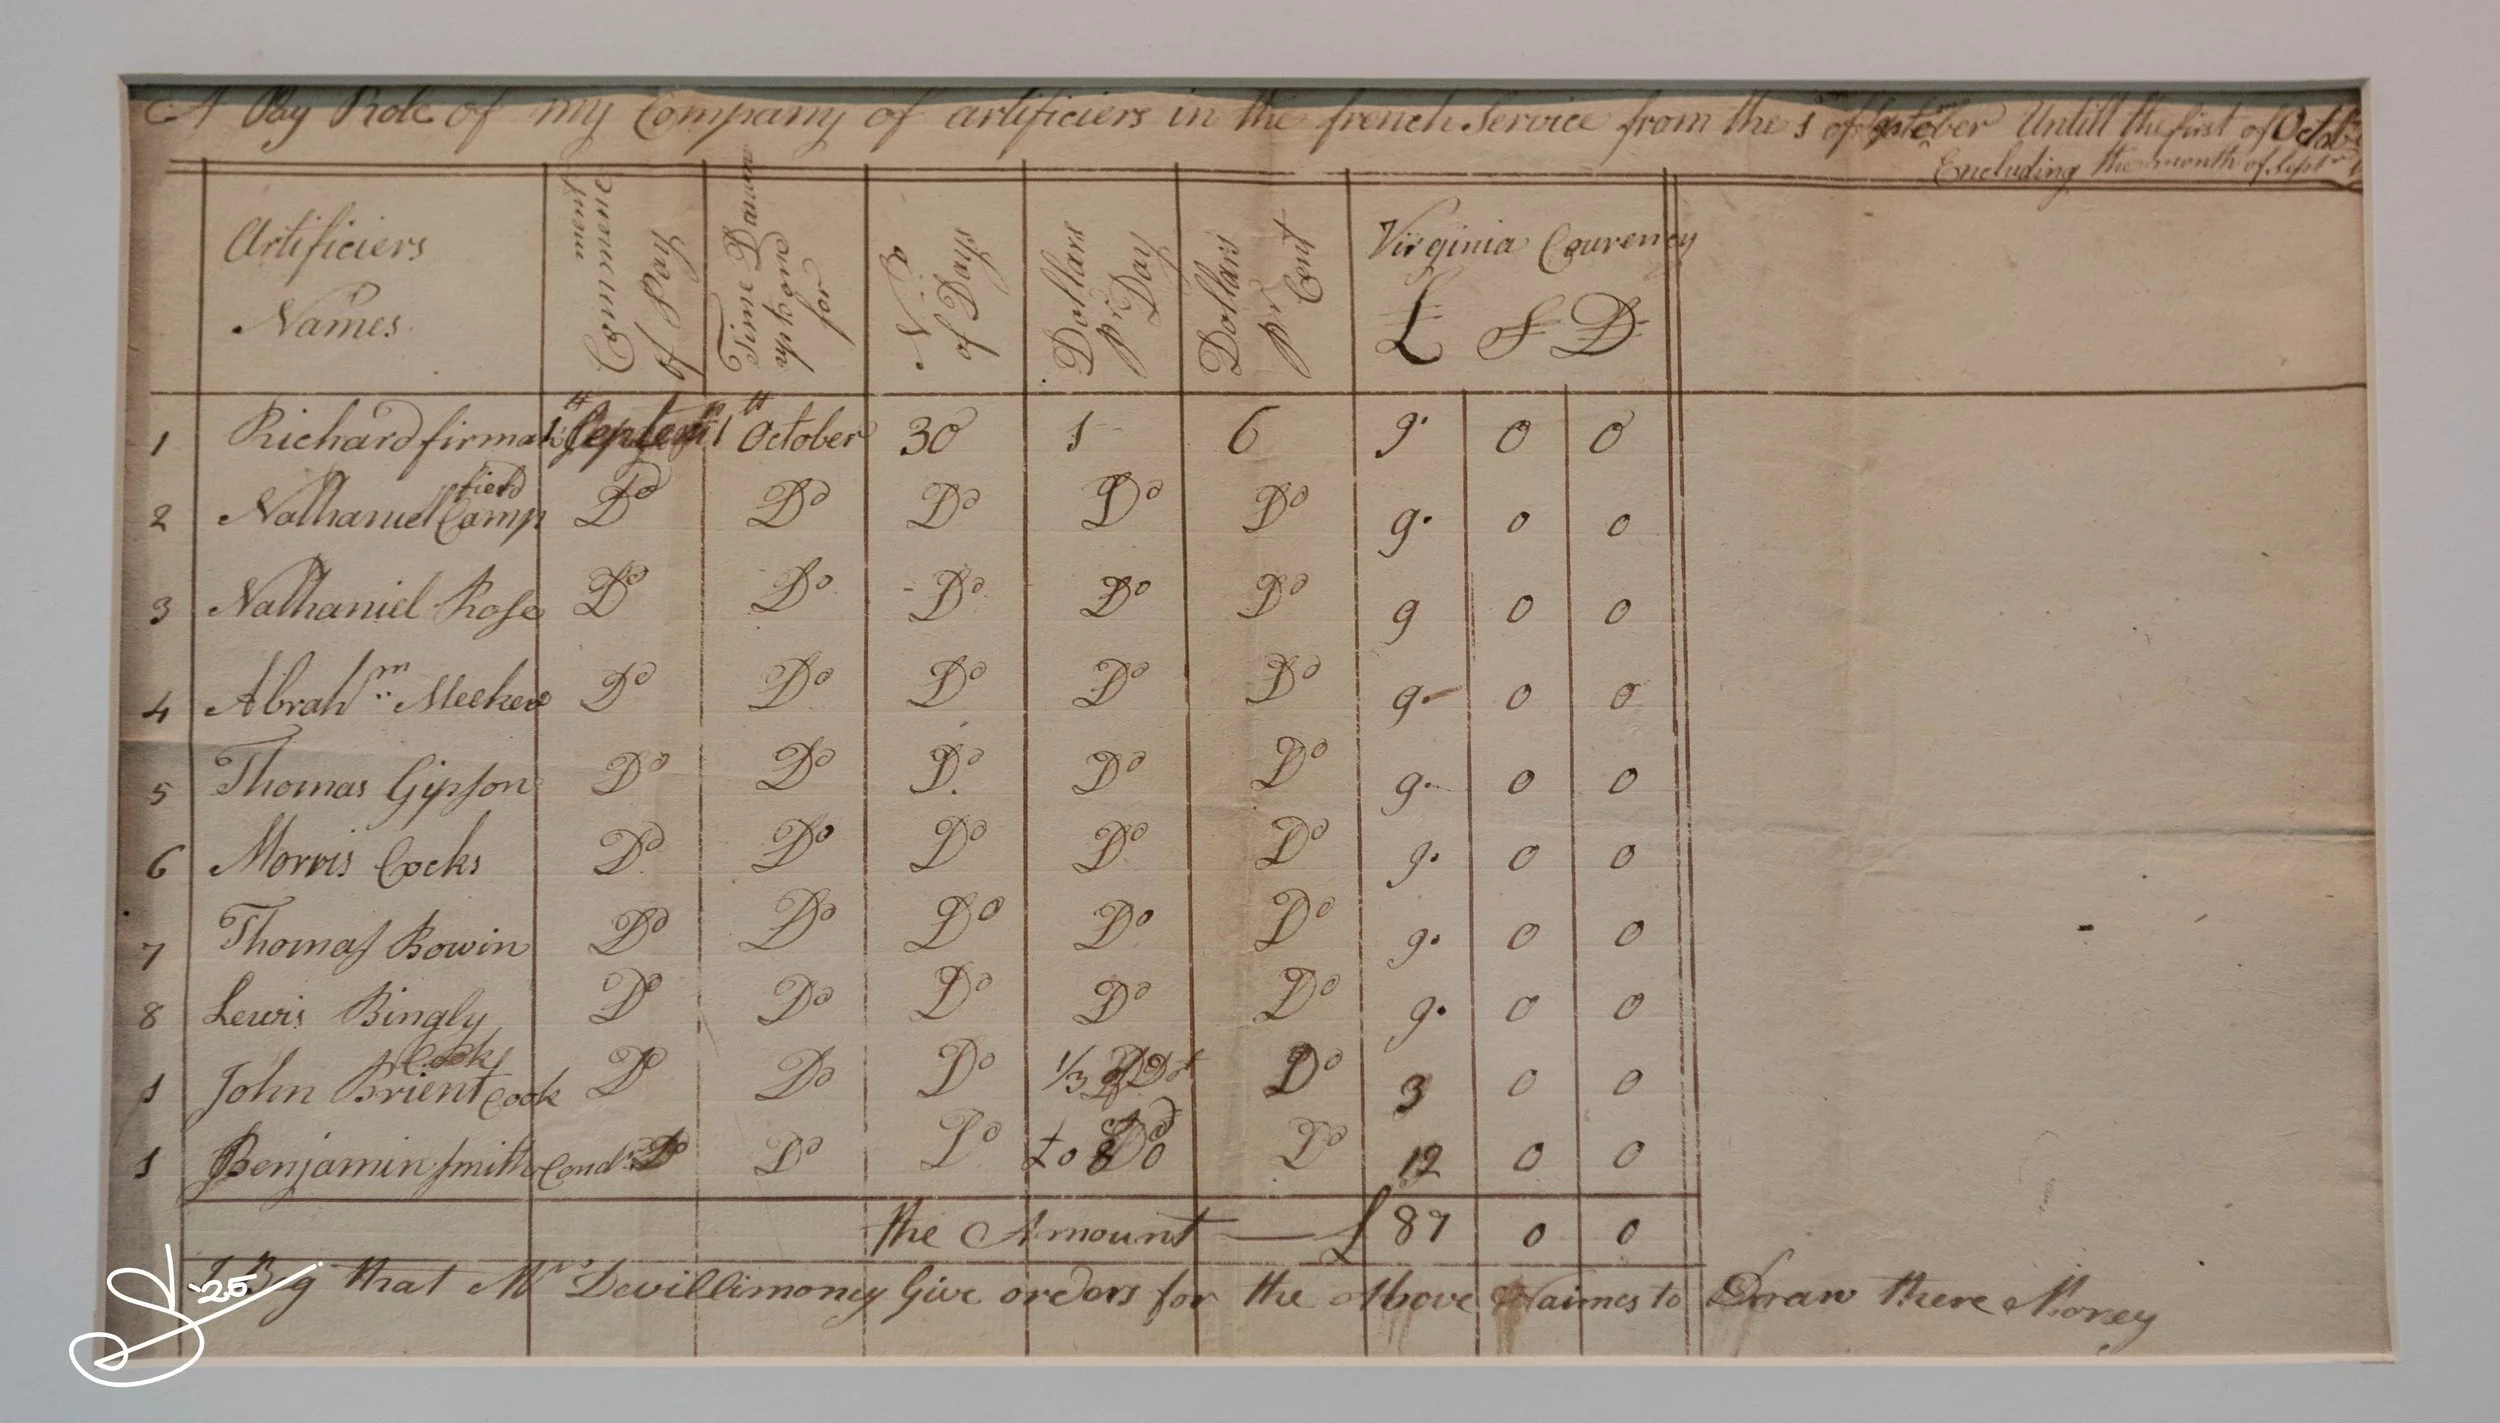 A Pay Role of my Company of artificiers in the french Service from the 1 of September Untill the first of Octobr
Encluding the month of Septr
Artificiers Names
Commencement of Pay
Time Drawn up and for
No of Days
Dollars pr Day
Dollars pr Cent
Virginia Courency
£ S D
1 Richard firman 1tt Septemr 1tt October 30 1 6 9 0 0
2 Nathaniel Campfield Do Do Do Do Do 9 0 0
3 Nathaniel Rose Do Do Do Do Do 9 0 0
4 Abrahm Meeker Do Do Do Do Do 9 0 0
5 Thomas Gipson Do Do Do Do Do 9 0 0
6 Morris Cocks Do Do Do Do Do 9 0 0
7 Thomas Bowin Do Do Do Do Do 9 0 0
8 Lewis Bingly Do Do Do Do Do 9 0 0
1 John Brient Cook Do Do Do 1/3 Do 3 0 0
1 Benjamin Smith Condr Do Do Do Do 12 0 0
the Amount — £ 87 0 0
I Beg that Mr Devillimoney Give orders for the Above Naimes to Draw there Money
25